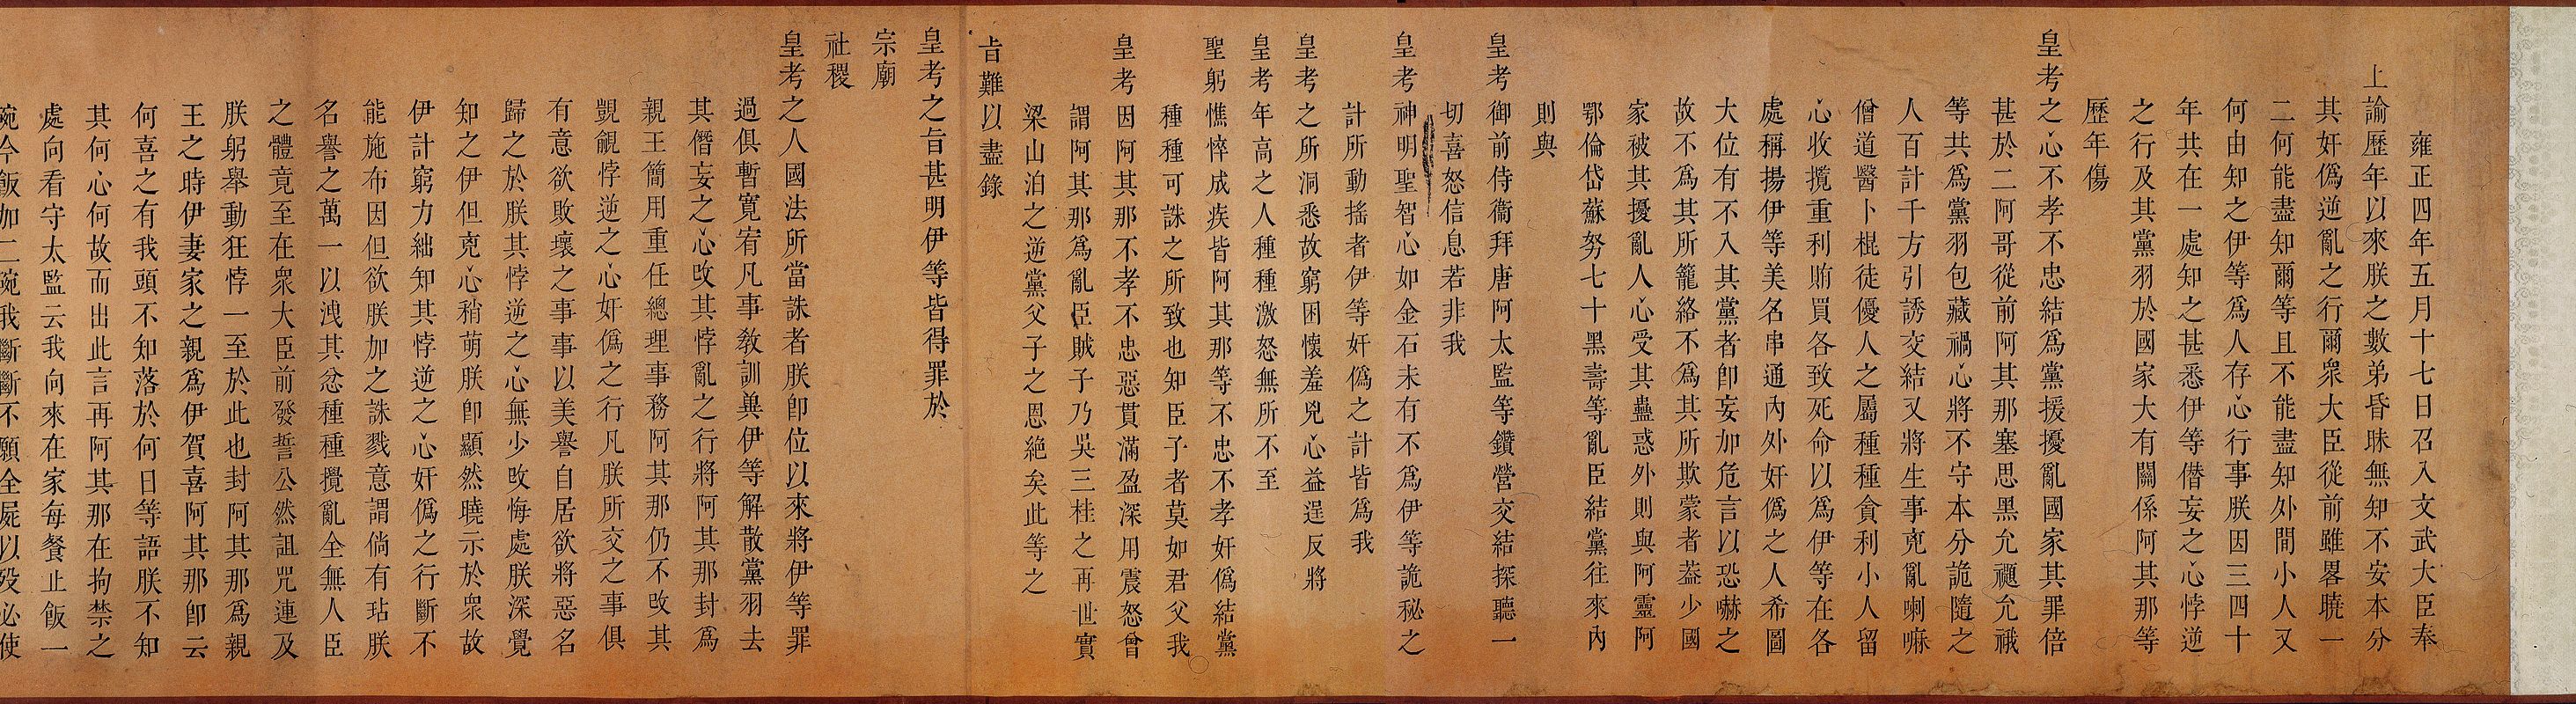 雍正四年五月十七日召入文武大臣奉
上諭歷年以來朕之數弟昏昧無知不安本分
其奸僞逆亂之行爾衆大臣從前雖畧曉一
二何能盡知爾等且不能盡知外間小人又
何由知之伊等爲人存心行事朕因三四十
年共在一處知之甚悉伊等僭妄之心悖逆
之行及其黨羽於國家大有關係阿其那等
歷年傷
皇考之心不孝不忠結爲黨援擾亂國家其罪倍
甚於二阿哥從前阿其那塞思黑允禵允䄉
等共爲黨羽包藏禍心將不守本分詭隨之
人百計千方引誘交結又將生事兇亂喇嘛
僧道醫卜棍徒優人之屬種種貪利小人留
心收攬重利賄買各致死命以爲伊等在各
處稱揚伊等美名串通內外奸僞之人希圖
大位有不入其黨者卽妄加危言以恐嚇之
故不爲其所籠絡不爲其所欺蒙者葢少國
家被其擾亂人心受其蠱惑外則與阿靈阿
鄂倫岱蘇努七十黑壽等亂臣結黨往來內
則與
皇考御前侍衞拜唐阿太監等鑽營交結探聽一
切喜怒信息若非我
皇考神明聖智心如金石未有不爲伊等詭秘之
計所動搖者伊等奸僞之計皆爲我
皇考之所洞悉故窮困懷羞兇心益逞反將
皇考年高之人種種激怒無所不至
聖躬憔悴成疾皆阿其那等不忠不孝奸僞結黨
種種可誅之所致也知臣子者莫如君父我
皇考因阿其那不孝不忠惡貫滿盈深用震怒曾
謂阿其那爲亂臣賊子乃吳三桂之再世實
梁山泊之逆黨父子之恩絶矣此等之
旨難以盡錄
皇考之旨甚明伊等皆得罪於
宗廟
社稷
皇考之人國法所當誅者朕卽位以來將伊等罪
過俱暫寬宥凡事教訓兾伊等解散黨羽去
其僭妄之心改其悖亂之行將阿其那封爲
親王簡用重任總理事務阿其那仍不改其
覬覦悖逆之心奸僞之行凡朕所交之事俱
有意欲敗壞之事事以美譽自居欲將惡名
歸之於朕其悖逆之心無少改悔處朕深覺
知之伊但克心稍萌朕卽顯然曉示於衆故
伊計窮力絀知其悖逆之心奸僞之行斷不
能施布因但欲朕加之誅戮意謂倘有玷朕
名譽之萬一以洩其忿種種攪亂全無人臣
之體竟至在衆大臣前發誓公然詛咒連及
朕躬舉動狂悖一至於此也封阿其那爲親
王之時伊妻家之親爲伊賀喜阿其那卽云
何喜之有我頭不知落於何日等語朕不知
其何心何故而出此言再阿其那在拘禁之
處向看守太監云我向來在家每餐止飯一
碗今飯加二碗我斷斷不願全屍以歿必使